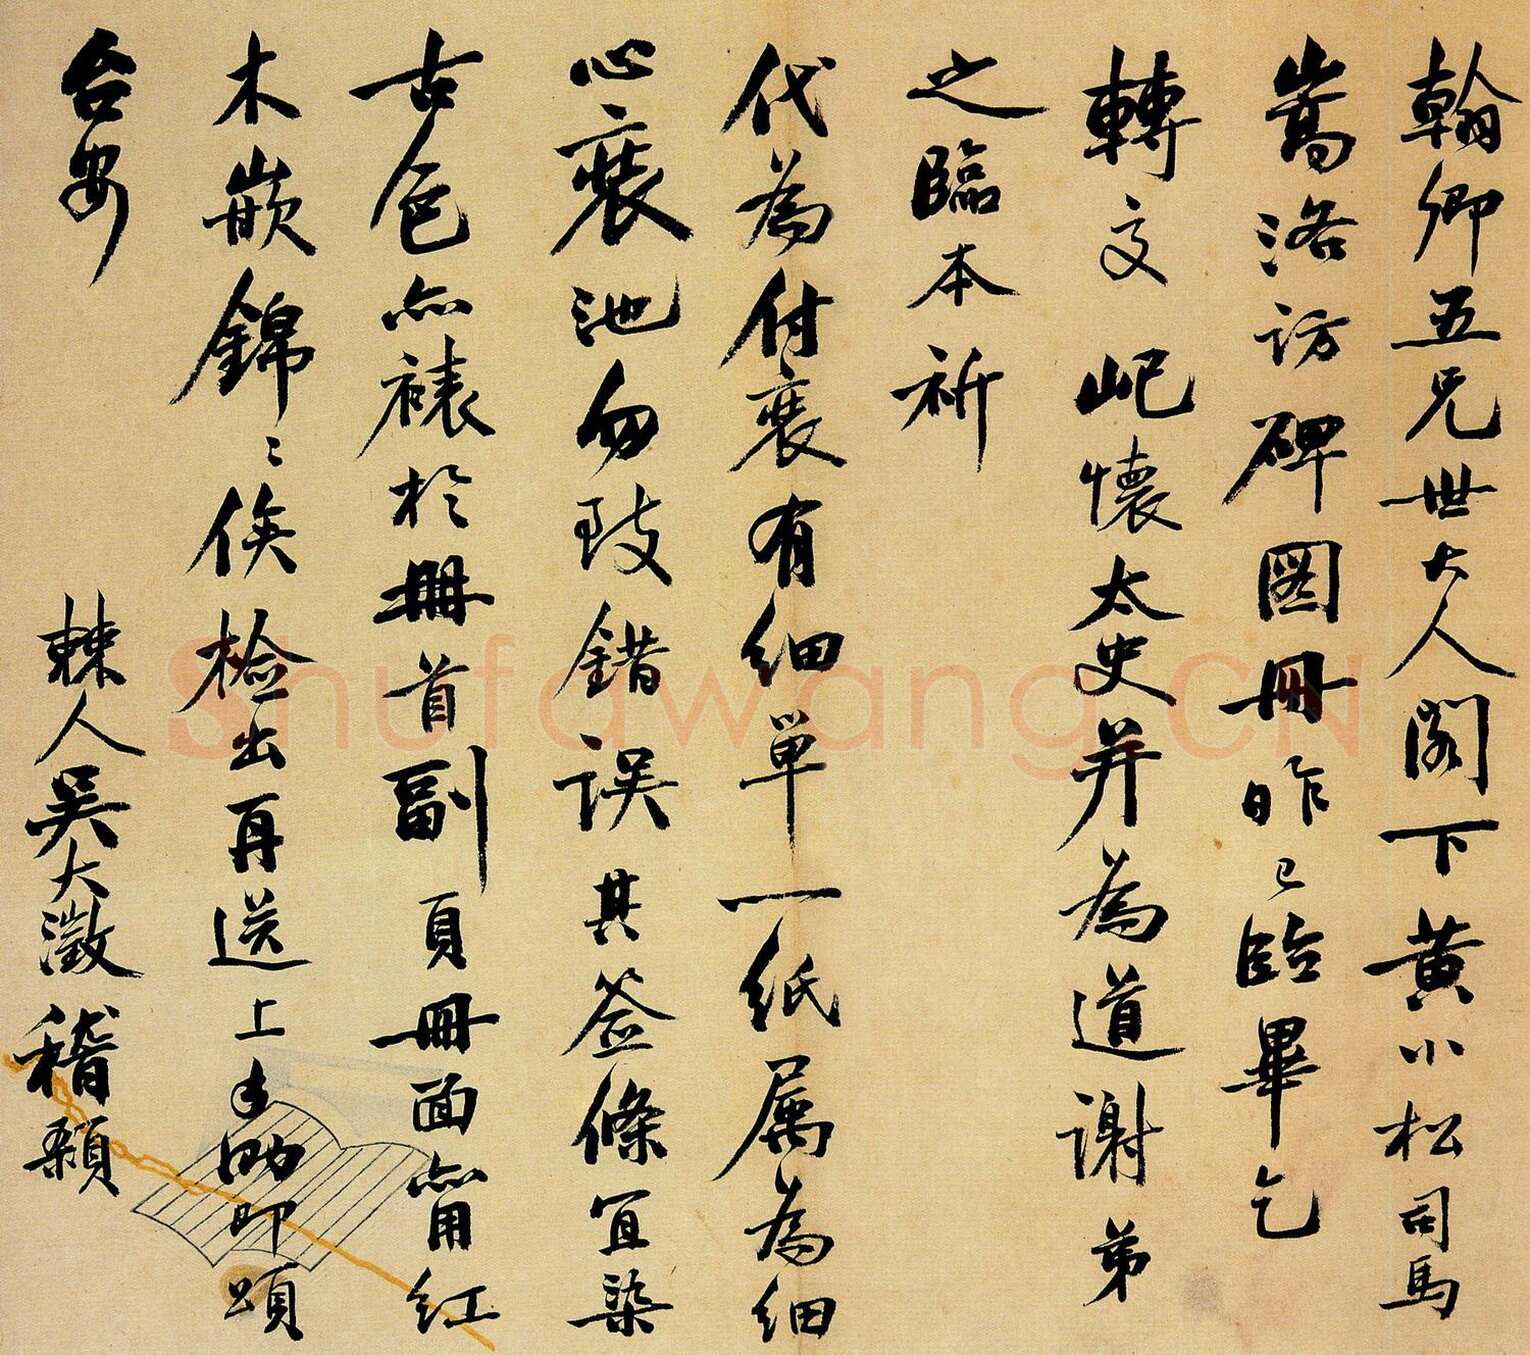 翰卿五兄世大人阁下黄小松司馬
嵩洛访碑图冊昨已臨畢乞
轉交屺懷太史并為道謝弟
之臨本祈
代為付裝有细单一纸属為细
心裝池勿致错误其签條宜染
古色点裱於冊首副頁冊面甯用红
木嵌錦〻俟檢出再送上手泐即頌
台安
棘人吴大澂稽顙
Shufawang.CN